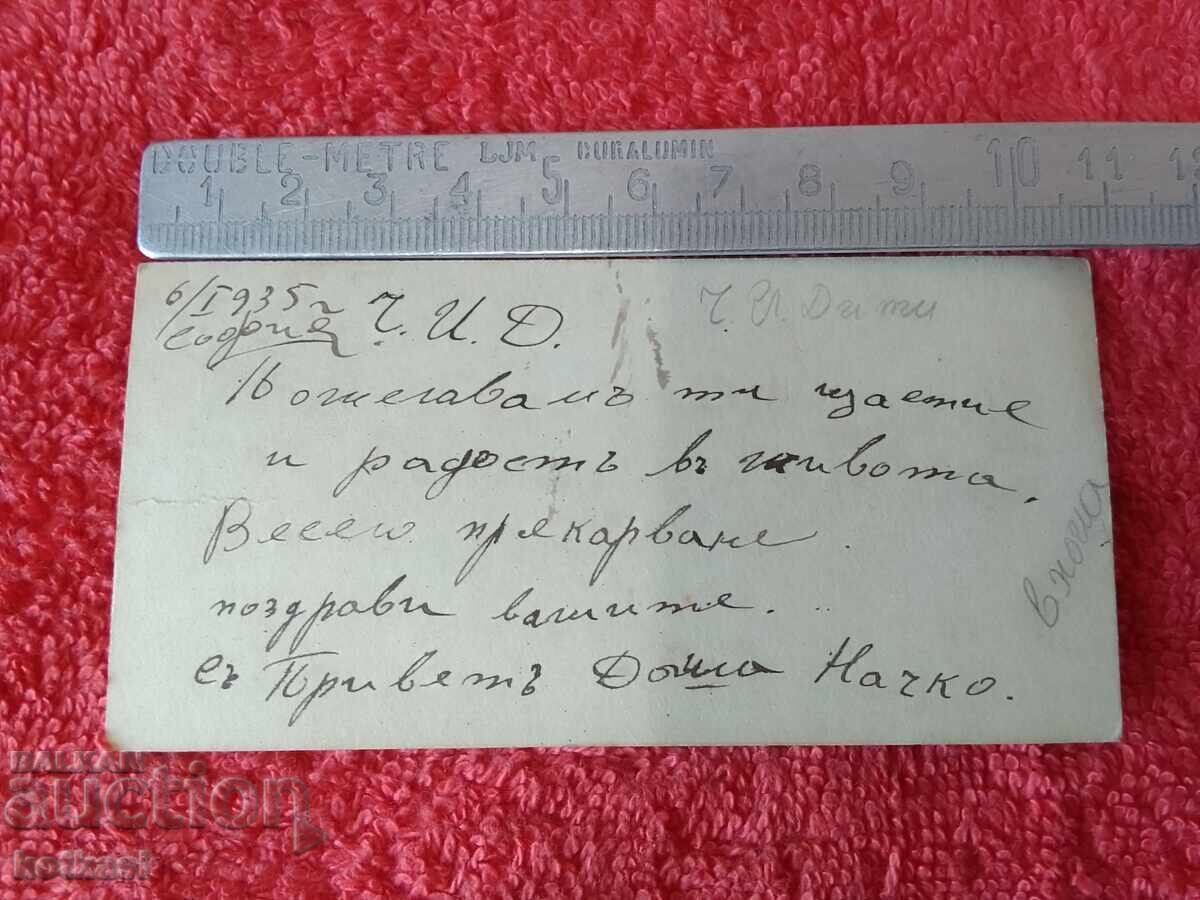 DOUBLE-METRE LJM DURALUMIN
1 2 3 4 5 6 7 8 9 10 11 12
6/I 1935 г
София Ч. И. Д.
Ч. И. Д
Пожелавамъ ти щастие
и радость въ живота.
Весело прякарване.
поздрави вашите.
съ Приветъ Начко.
BALKAN
auction
kotkasi